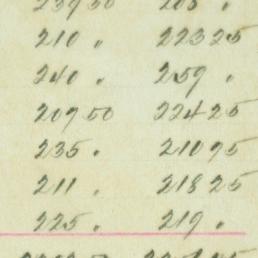 237 50 205 "
210 " 223 25
240 " 259 "
207 50 224 25
235 " 210 75
211 " 218 25
225 " 219 "